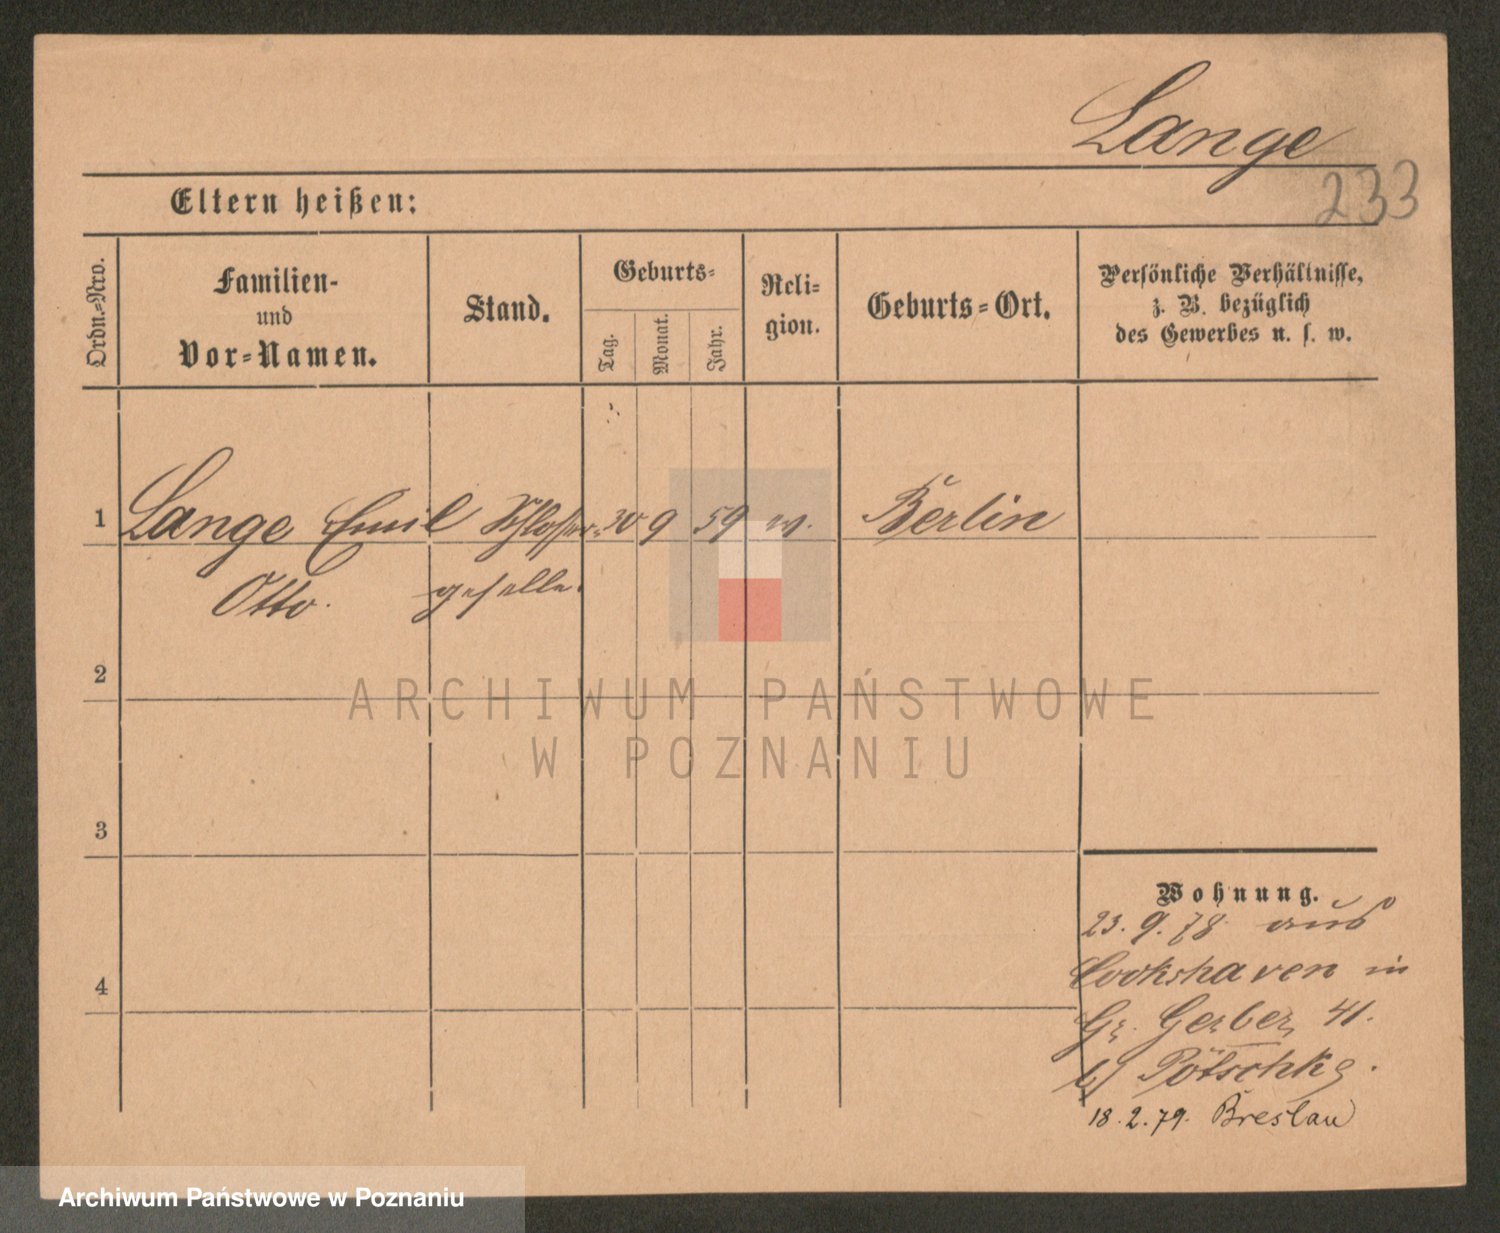 Lange
233
Eltern heißen:
Ordn.=Nro.
Familien-
und
Vor=Namen.
Stand.
Geburts=
Tag.
Monat.
Jahr.
Reli=
gion.
Geburts=Ort.
Persönliche Verhältnisse,
z. B. bezüglich
des Gewerbes u. s. w.
1 Lange Emil Schlosser= 30 9 59 w. Berlin
Otto. geselle.
2
ARCHIWUM PAŃSTWOWE
W POZNANIU
3
Wohnung.
23. 9. 78. aus
Cookshaven in
4
Gr. Gerber 41.
b/ Pötschke.
18. 2. 79. Breslau
Archiwum Państwowe w Poznaniu